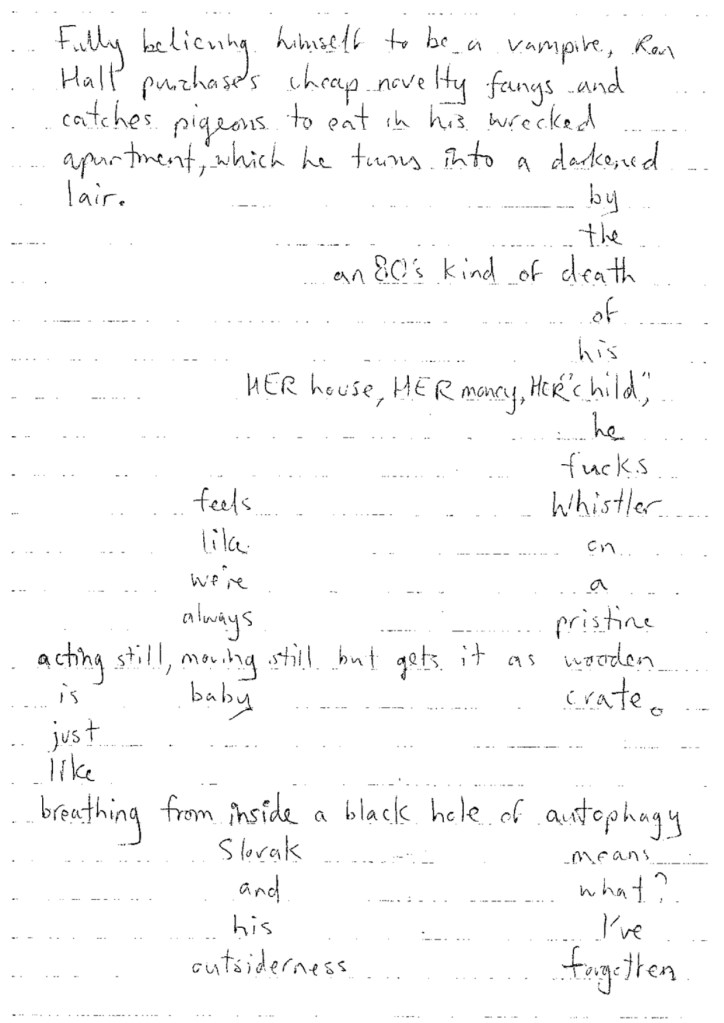 Fully believing himself to be a vampire, Ron
Hall purchases cheap novelty fangs and
catches pigeons to eat in his wrecked
apartment, which he turns into a darkened
lair. by
the
an 80's kind of death
of
his
HER house, HER money, HER "child",
he
fucks
feels Whistler
like on
we're a
always pristine
acting still, moving still but gets it as wooden
is baby crate.
just
like
breathing from inside a black hole of autophagy
Slovak means
and what?
his I've
outsiderness forgotten